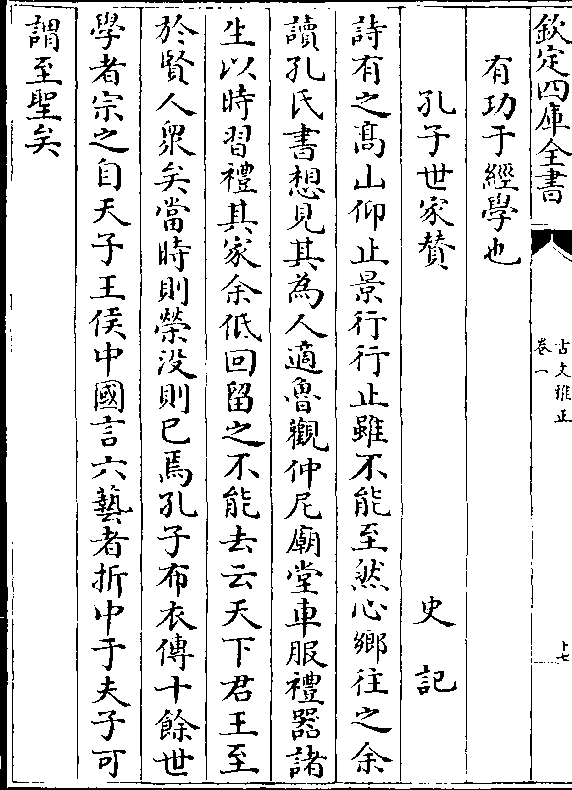 欽定四庫全書
古文雅正
卷一
十七
有功于經學也
孔子世家賛 史記
詩有之髙山仰止景行行止雖不能至然心鄉往之余
讀孔氏書想見其為人適魯觀仲尼廟堂車服禮器諸
生以時習禮其家余低回留之不能去云天下君王至
於賢人衆矣當時則榮没則已焉孔子布衣傳十餘世
學者宗之自天子王侯中國言六藝者折中于夫子可
謂至聖矣